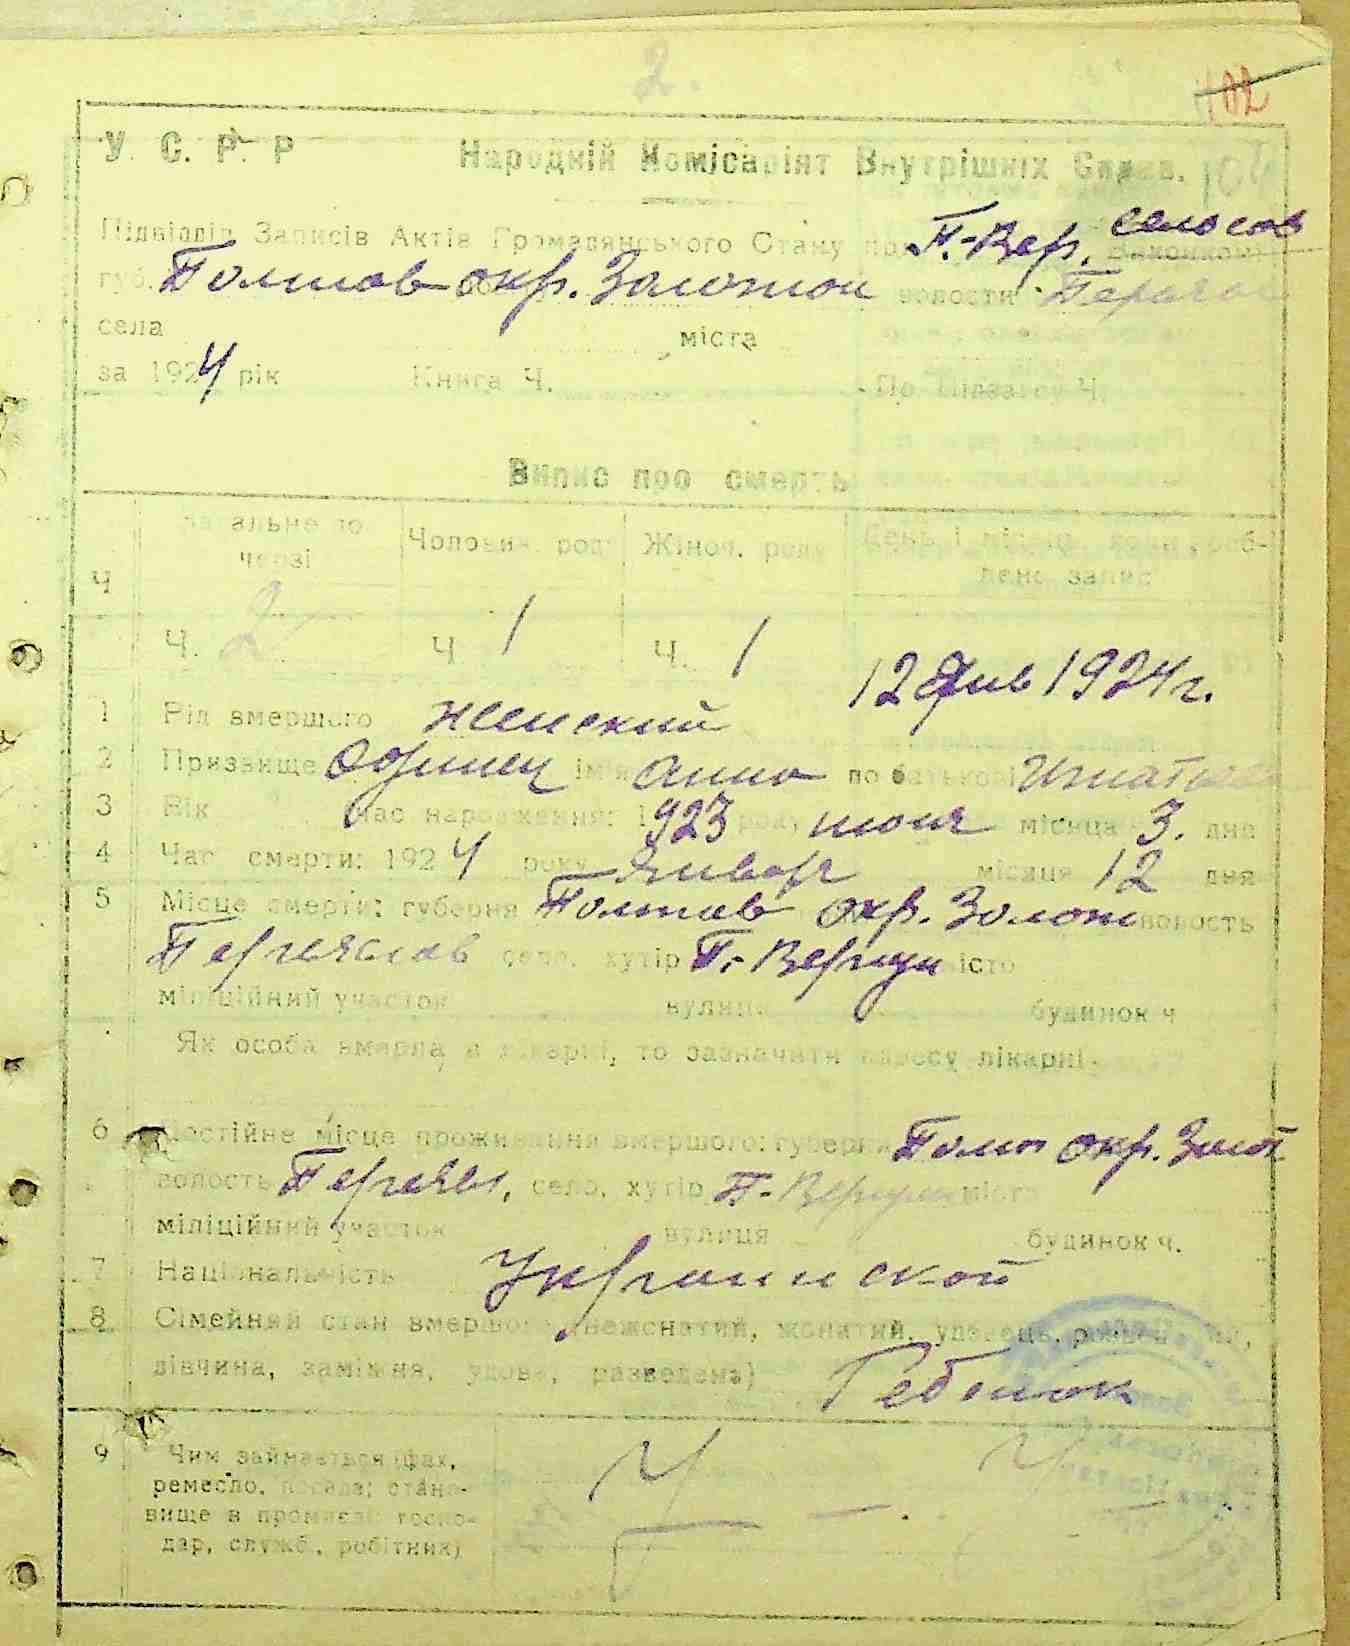 2.
402
У. С. Р. Р Народній Комісаріят Внутрішніх Справ.
Підвідділ Записів Актів Громадянського Стану по П.-Вер. селосов Виконкому
губ. Полтав окр. Золотон волости Переяс
села міста
за 1924 рік Книга Ч. По Підзагсу Ч.
Випис про смерть
Ч загальне по черзі Чоловіч. роду Жіноч. роду День і місяць, коли зроблено запис
Ч. 2 Ч 1 Ч. 1 12 Янв 1924 г.
1 Рід вмершого женский
2 Призвище Одинец імя Анна по батькові Игнатьев
3 Вік Час народження: 1923 року, июня місяця 3. дня
4 Час смерти: 1924 року Январ місяця 12 дня
5 Місце смерти: губерня Полтав окр. Золот волость
Переяслав село, хутір П.-Вергун місто
міліційний участок вулиця будинок ч
Як особа вмерла в лікарні, то зазначити адресу лікарні
6 Постійне місце проживання вмершого: губерня Полт окр. Золот
волость Переясл, село, хутір П.-Вергун місто
міліційний участок вулиця будинок ч.
7 Національність Украинской
8 Сімейний стан вмершого (нежонатий, жонатий, удовець,
дівчина, заміжня, удова, разведена) Ребенок
9 Чим займається (фах,
ремесло, посада; стано-
вище в промислі: госпо-
дар, служб., робітник)